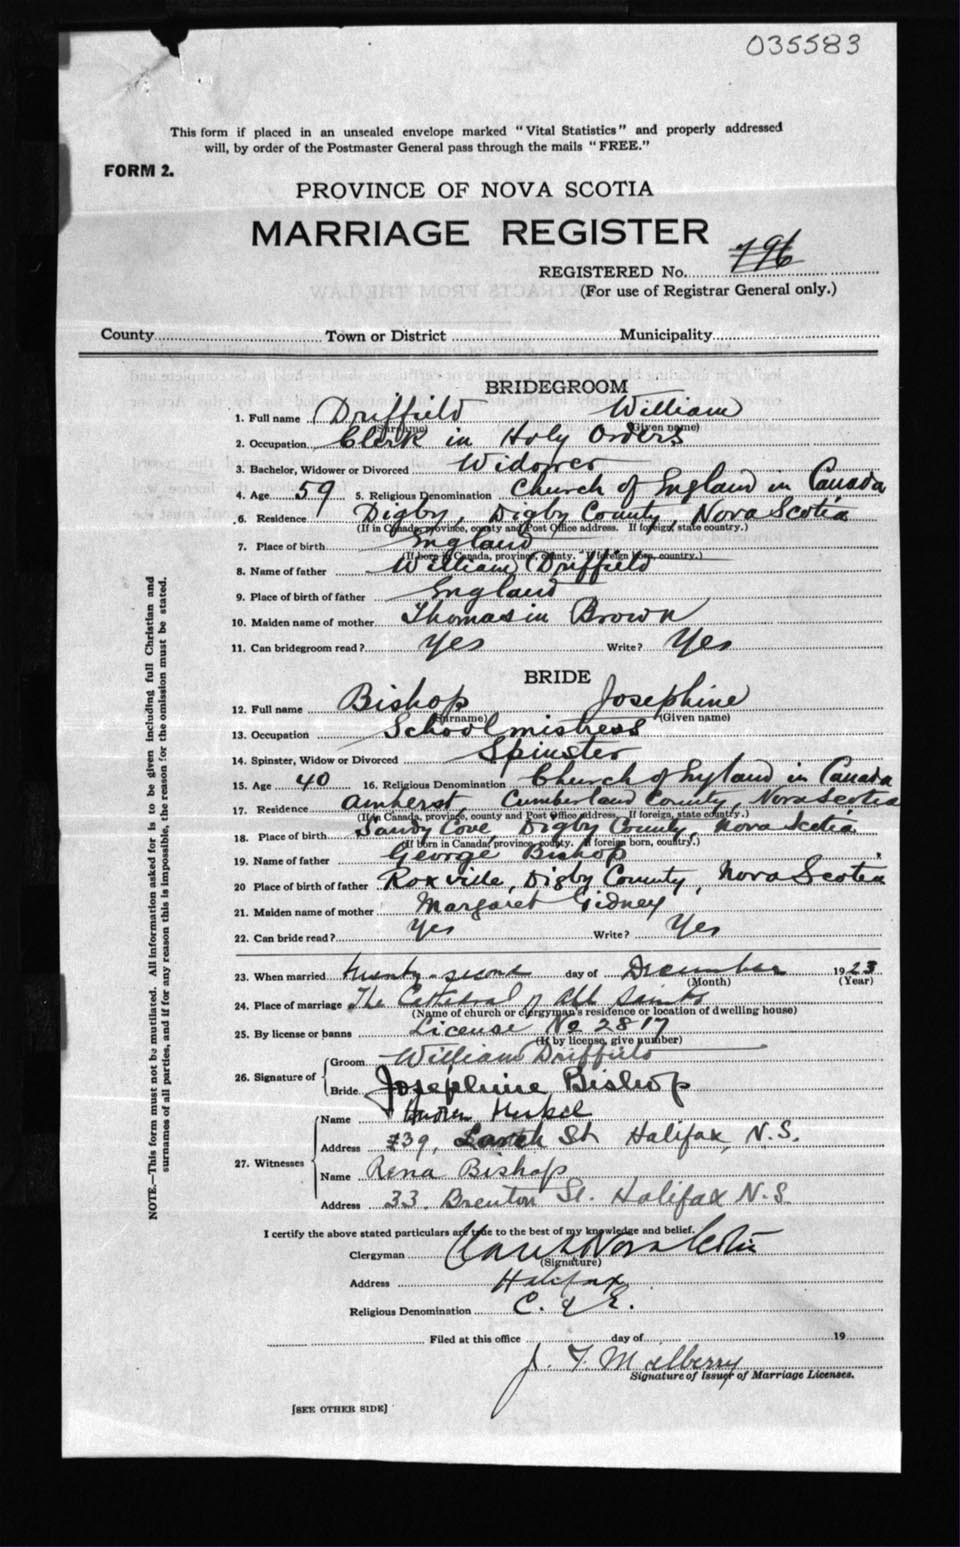 035583
This form if placed in an unsealed envelope marked "Vital Statistics" and properly addressed
will, by order of the Postmaster General pass through the mails "FREE."
FORM 2.
PROVINCE OF NOVA SCOTIA
MARRIAGE REGISTER
REGISTERED No. 796
(For use of Registrar General only.)
County Town or District Municipality
BRIDEGROOM
1. Full name Driffield William
(Surname) (Given name)
2. Occupation Clerk in Holy Orders
3. Bachelor, Widower or Divorced Widower
4. Age 59 5. Religious Denomination Church of England in Canada
6. Residence Digby, Digby County, Nova Scotia
(If in Canada, province, county and Post Office address. If foreign, state country.)
7. Place of birth England
(If born in Canada, province, county. If foreign born, country.)
8. Name of father William Driffield
9. Place of birth of father England
10. Maiden name of mother Thomasin Brown
11. Can bridegroom read? Yes Write? Yes
BRIDE
12. Full name Bishop Josephine
(Surname) (Given name)
13. Occupation School mistress
14. Spinster, Widow or Divorced Spinster
15. Age 40 16. Religious Denomination Church of England in Canada
17. Residence Amherst, Cumberland County, Nova Scotia
(If in Canada, province, county and Post Office address. If foreign, state country.)
18. Place of birth Sandy Cove, Digby County, Nova Scotia
(If born in Canada, province, county. If foreign born, country.)
19. Name of father George Bishop
20 Place of birth of father Roxville, Digby County, Nova Scotia
21. Maiden name of mother Margaret Gidney
22. Can bride read? Yes Write? Yes
23. When married twenty-second day of December 1923
(Month) (Year)
24. Place of marriage The Cathedral of All Saints
(Name of church or clergyman's residence or location of dwelling house)
25. By license or banns License No 2817
(If by license, give number)
26. Signature of
Groom William Driffield
Bride Josephine Bishop
27. Witnesses
Name
Address 239, St. Halifax, N.S.
Name Rena Bishop
Address 33. Brenton St. Halifax N.S.
I certify the above stated particulars are true to the best of my knowledge and belief.
Clergyman Nova Scotia
(Signature)
Address Halifax
Religious Denomination C. of E.
Filed at this office day of 19
J. F.
Signature of Issuer of Marriage Licenses.
[SEE OTHER SIDE]
NOTE.—This form must not be mutilated. All information asked for is to be given including full Christian and
surnames of all parties, and if for any reason this is impossible, the reason for the omission must be stated.